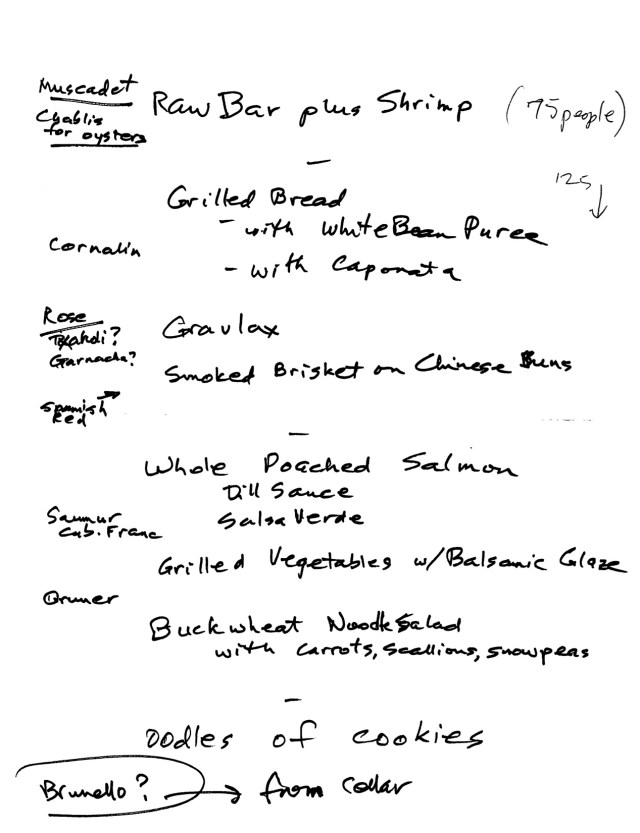 Muscadet
Chablis
for oysters
Raw Bar plus Shrimp (75 people)
125 ↓
Grilled Bread
- with White Bean Puree
Cornalin
- with Caponata
Rose
Txakoli?
Garnacha?
Gravlax
Smoked Brisket on Chinese Buns
Spanish →
Red
Whole Poached Salmon
Dill Sauce
Salsa Verde
Saumur
Cab. Franc
Grilled Vegetables w/Balsamic Glaze
Gruner
Buckwheat Noodle Salad
with carrots, scallions, snowpeas
oodles of cookies
Brunello? → from cellar